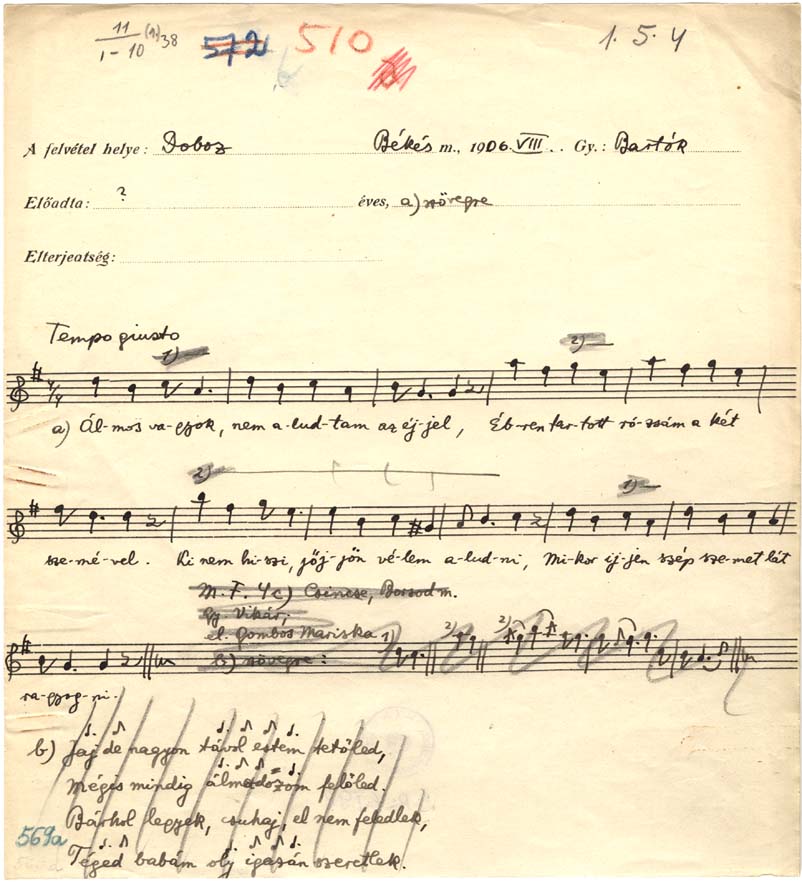 11 (1) 38
1-10
572 510
1. 5. 4
A felvétel helye: Doboz Békés m., 1906. VIII. Gy.: Bartók
Előadta: ? éves, a) szövegre
Elterjedtség:
Tempo giusto
1) 2)
4/4
a) Ál-mos va-gyok, nem a-lud-tam az éj-jel, Éb-ren tar-tott ró-zsám a két
2) 1)
sze-mé-vel. Ki nem hi-szi, jőj-jön vé-lem a-lud-ni, Mi-kor ij-jen szép sze-met lát
M. F. 4c) Csincse, Borsod m.
Gy. Vikár;
el. Gombos Mariska 1) 2) 2)
b) szövegre:
ra-gyog-ni.
b) Jaj de nagyon távol estem tetőled,
Mégis mindig álmodozom felőled.
Bárhol legyek, csuhaj, el nem feledlek,
569a
Téged babám oly igazán szeretlek.